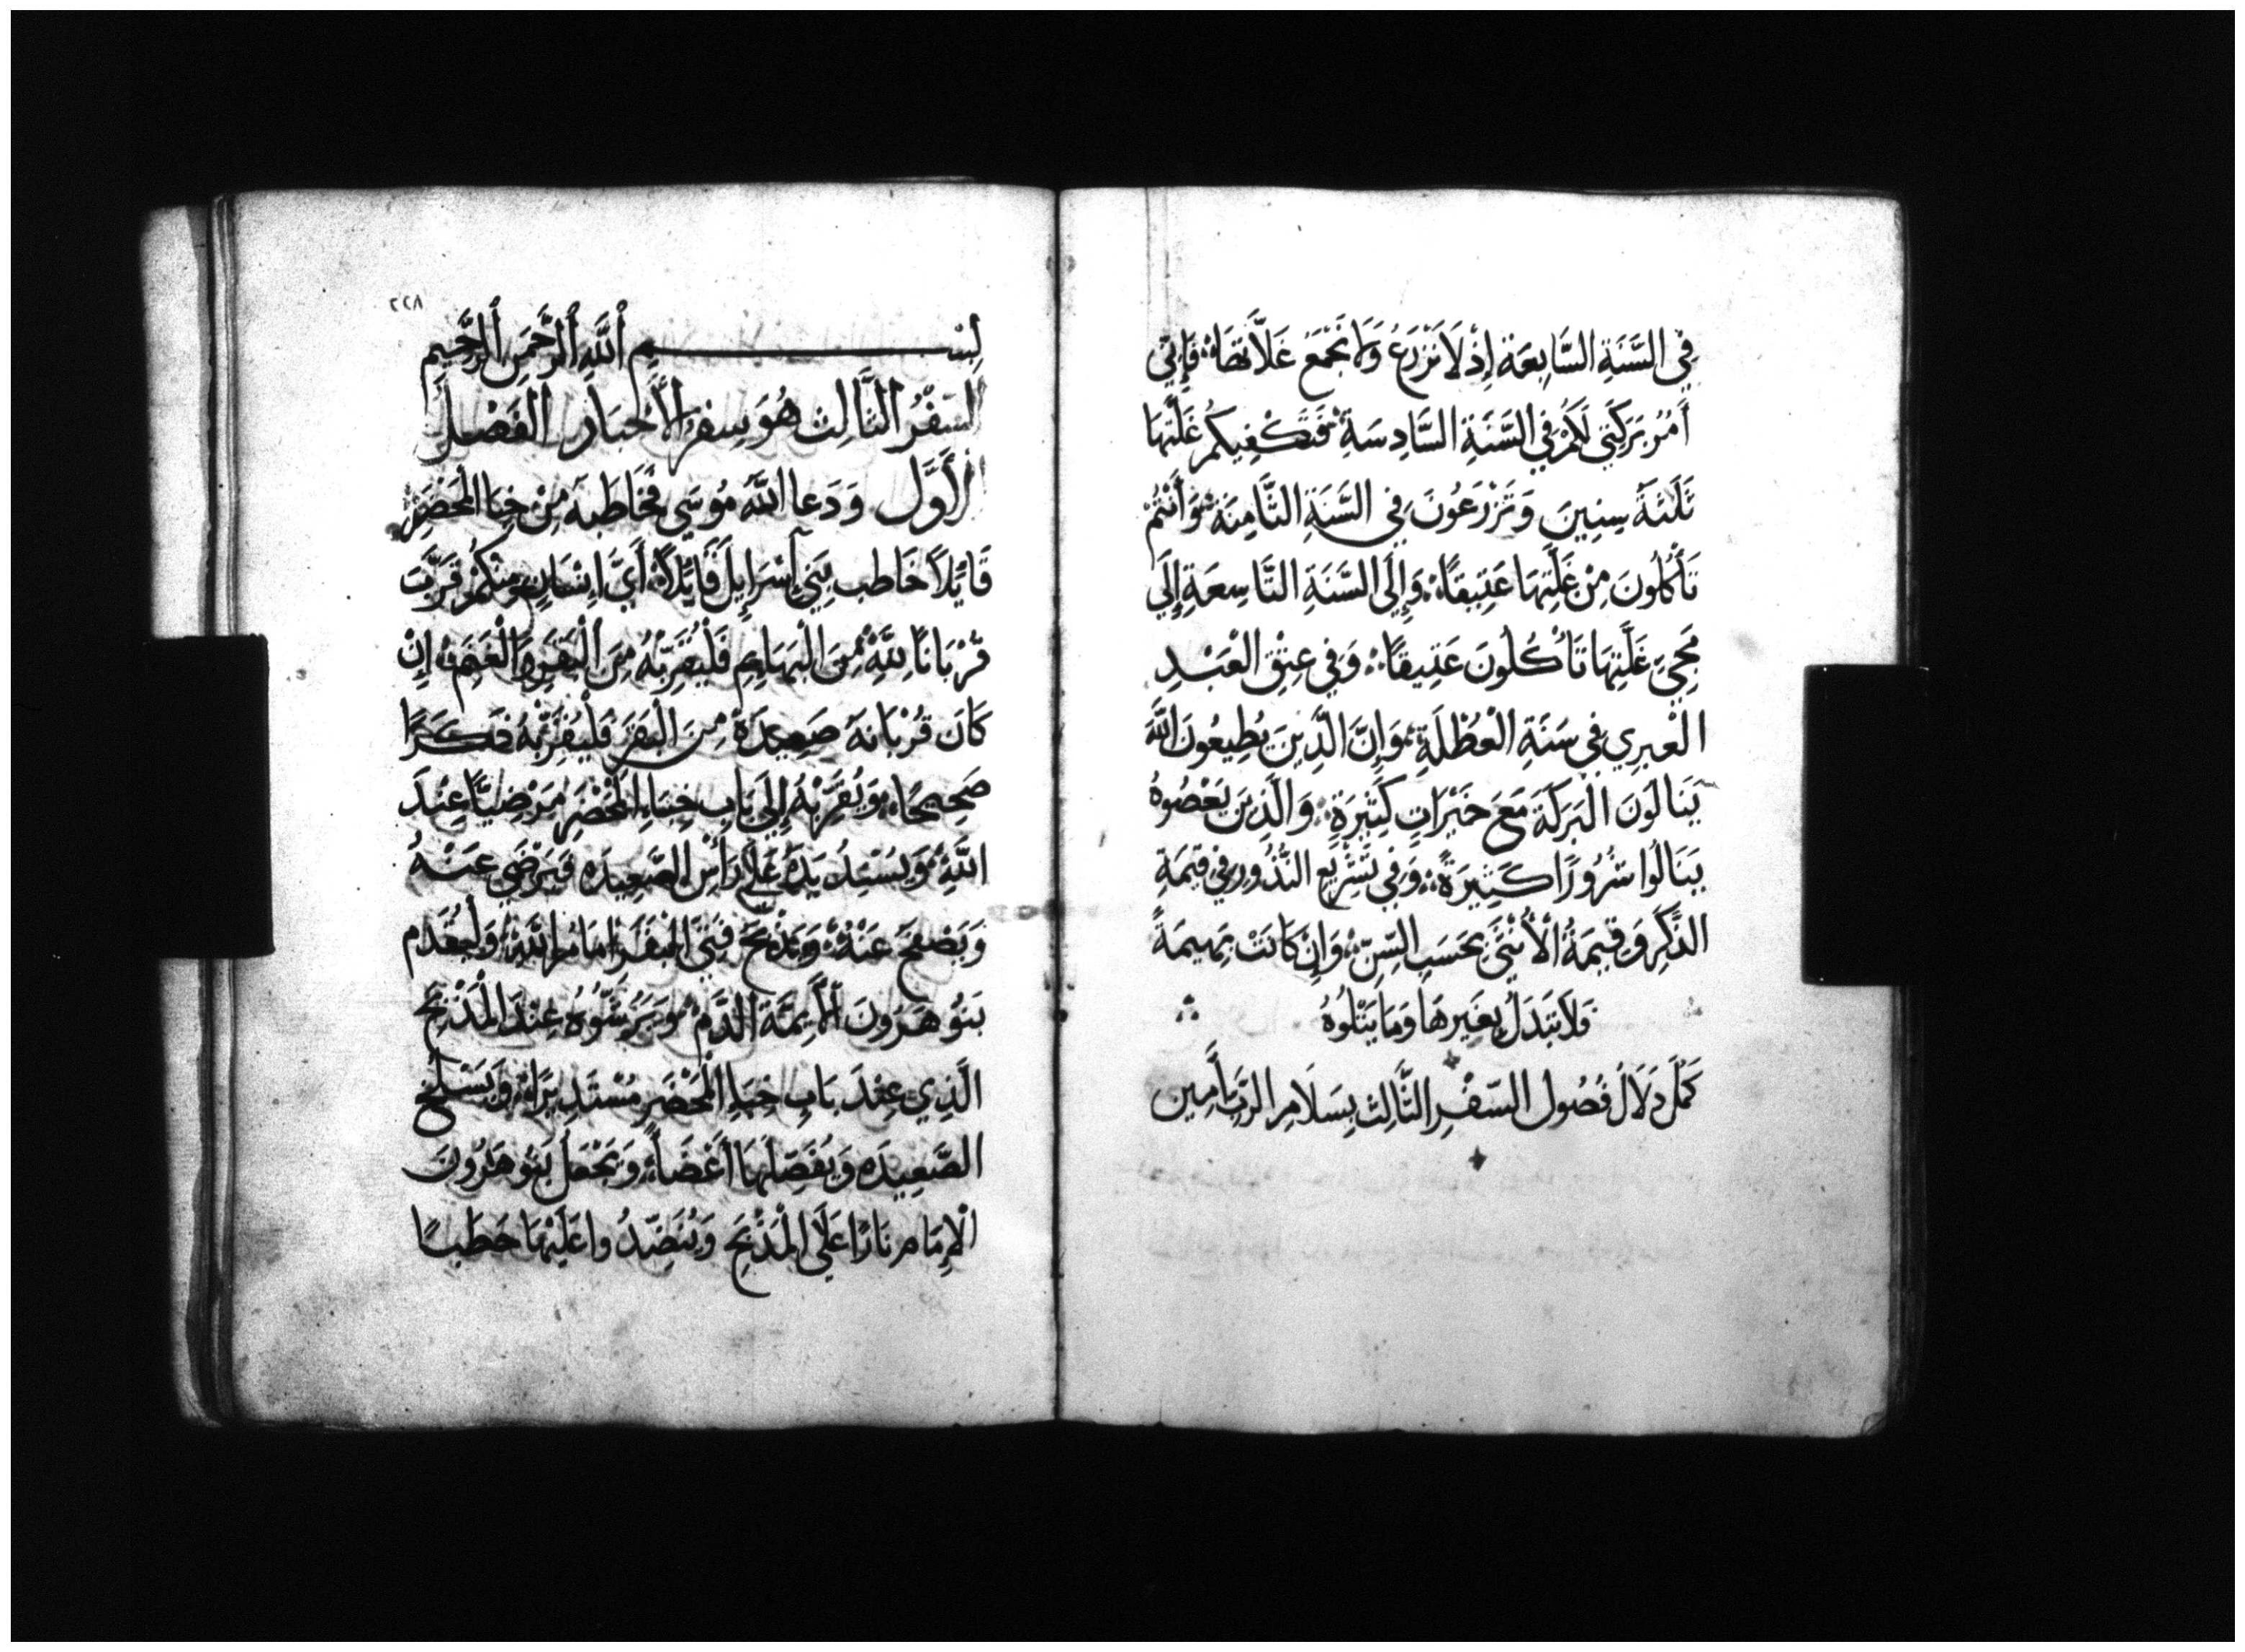 في السَّنَةِ السَّابِعَة إِذْ لَا نَزْرَعُ وَلَا نَجْمَعُ غَلَّاتِهَا فَإِنِّي
أَمُرُ بَرَكَتِي لَكُمْ فِي السَّنَةِ السَّادِسَةِ فَتَكْفِيكُم غَلَّتُهَا
ثَلَثَةَ سِنِينَ وَتَزْرَعُونَ فِي السَّنَةِ الثَّامِنَةِ وَأَنْتُمْ
تَأْكُلُونَ مِنْ غَلَّتِهَا عَتِيقًا وَإِلَى السَّنَةِ التَّاسِعَةِ إِلَى
مَجِيِّ غَلَّتِهَا تَأْكُلُونَ عَتِيقًا وَفِي عِتْقِ الْعَبْدِ
الْعِبْرِي فِي سَنَةِ الْعُطْلَةِ وَإِنَّ الَّذِينَ يُطِيعُونَ اللَّهَ
يَنَالُونَ الْبَرَكَةَ مَعَ خَيْرَاتٍ كَثِيرَةٍ وَالَّذِينَ يَعْصُوهُ
يَنَالُوا شُرُورًا كَثِيرَةً وَفِي تَشْرِيعِ النُّذُورِ فِي قِيمَةِ
الذَّكَرِ وَقِيمَةُ الْأُنْثَى بِحَسَبِ السِّنِّ وَإِنْ كَانَتْ بَهِيمَةً
فَلَا تُبَدَلُ بِغَيْرِهَا وَمَا يَتْلُوهُ
كَمُلَ دَلَالُ فُصُول السِّفْرِ الثَّالِث بِسَلَامِ الرَّبِّ أَمِين
٢٢٨
بِسْمِ أللَّهِ ألرَّحْمَنِ ألرَّحِيمِ
السِّفْرُ الثَّالِث هُوَ سِفْرُ الْأَحْبَارِ الفَصْلُ
الْأَوَّل وَدَعَا اللَّهُ مُوسَى فَخَاطَبَهُ مِنْ خِبَا الْمَحْضَرِ
قَائِلاً خَاطِب بَنِي إِسْرَايِلَ قَايِلاً أَيُّ إِنْسَانٍ مِنْكُمْ قَرَّبَ
قُرْبَانًا لِلَّهِ مِنَ الْبَهَايِمِ فَلْيُقَرِّبْهُ مِنَ الْبَقَرِ وَالْغَنَمِ إِنْ
كَانَ قُرْبَانَهُ صَعِيدَةً مِنَ الْبَقَرِ فَلْيُقَرِّبْهُ ذَكَرًا
صَحِيحًا وَيُقَرِّبْهُ إِلَى بَابِ خِبَاءِ الْمَحْضَرِ مَرْضِيًّا عِنْدَ
اللَّهِ وَيُسْنِدُ يَدَهُ عَلَى رَأْسِ الصَّعِيدَه فَيَرْضَى عَنْهُ
وَيَصْفَحُ عَنْهُ وَيَذْبَحُ فَتِيَّ الْبَقَرَ امَام اللَّهِ وَلْيُقَدِّم
بَنُو هَرُونَ الْأَيِمَّة الدَّم وَيَرُشُّوُهُ عِنْدَ الْمَذْبَحِ
الَّذِي عِنْدَ بَابِ خِبَاءِ الْمَحْضَرِ مُسْتَدِيرًا وَيَسْلَخُ
الصَّعِيدَه وَيُفَصِّلُهَا أَعْضَاءً وَيَجْعَلُ بَنُو هَرُونَ
الْإِمَام نَارًا عَلَى الْمَذْبَحِ وَيُنَضِّدُوا عَلَيْهَا حَطَبًا